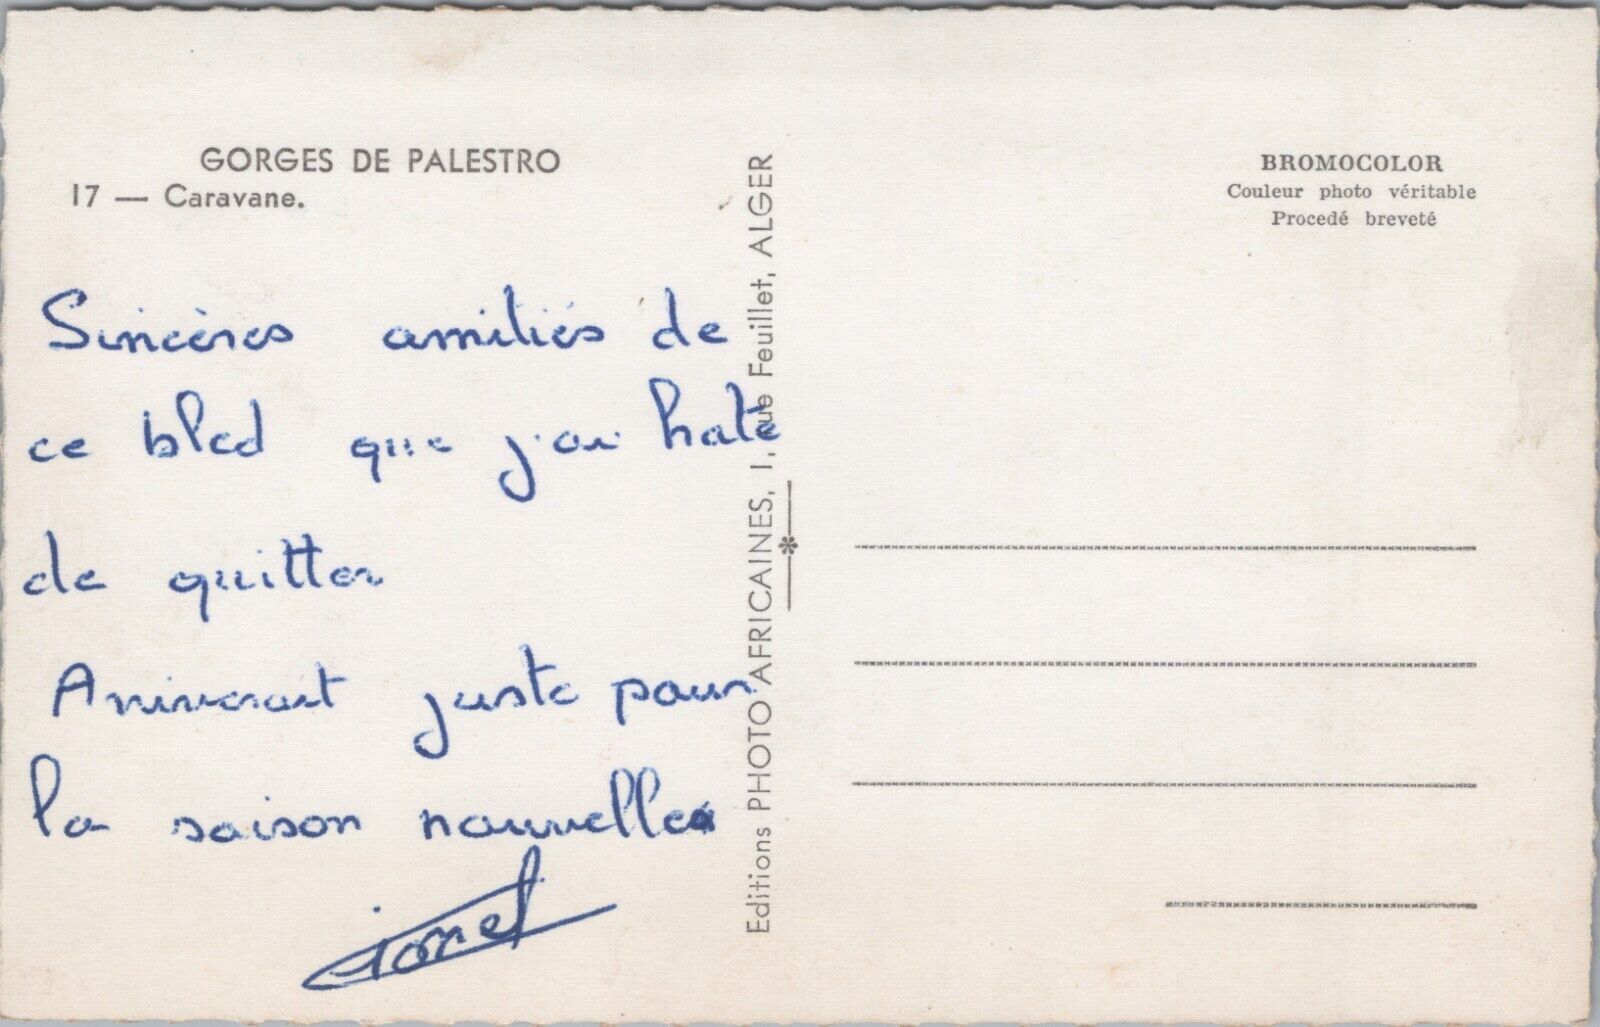 GORGES DE PALESTRO
17 — Caravane.
Sincères amitiés de
ce bled que j'ai hate
de quitter
Arriverait juste pour
la saison nouvelle
Editions PHOTO AFRICAINES, 1, rue Feuillet, ALGER
BROMOCOLOR
Couleur photo véritable
Procedé breveté